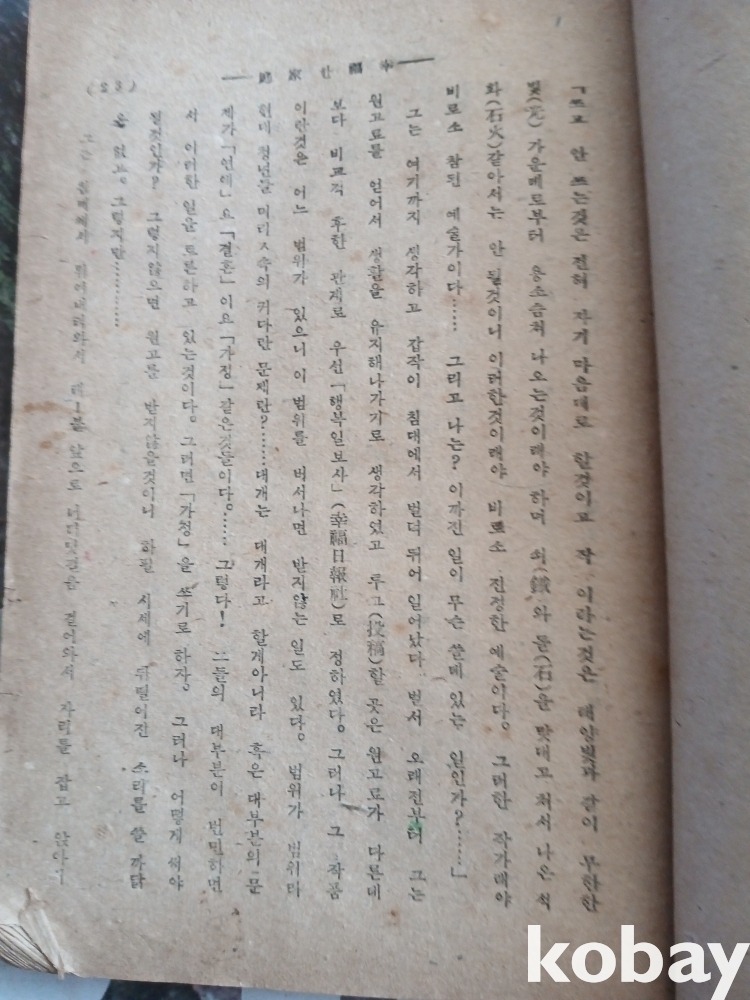 —幸福한家庭—
(23)
「쓰고 안 쓰는것은 전혀 자기 마음대로 할것이고 작 이라는것은 태양빛과 같이 무한한
빛(光) 가운데로부터 용소슴쳐 나오는것이래야 하며 쇠(鐵)와 돌(石)을 맞대고 처서 나은 석
화(石火)같아서는 안 될것이니 이러한것이래야 비로소 진정한 예술이다。 그러한 작가래야
비로소 참된 예술가이다…… 그리고 나는? 이까진 일이 무슨 쓸데 있는 일인가?……」
그는 여기까지 생각하고 갑작이 침대에서 벌떡 뛰어 일어났다 벌서 오래전부터 그는
원고료를 얻어서 생활을 유지해나가기로 생각하였고 루고(投稿)할 곳은 원고료가 다른데
보다 비교적 후한 관계로 우선「행복일보사」(幸福日報社)로 정하였다。그러나 그 작품
이란것은 어느 범위가 있으니 이 범위를 버서나면 받지않는 일도 있다。 범위가 범위다
현대 청년들 머리ㅅ속의 커다란 문제란?……대개는 대개라고 할게아니라 혹은 대부분의 문
제가「연애」요「결혼」이요「가정」같은것들이다。…… 그렇다! 그들의 대부분이 번민하면
서 이러한 일을 토론하고 있는것이다。그러면「가정」을 쓰기로 하자。 그러나 어떻게 써야
될것인가? 그렇지않으면 원고를 받지않을것이니 하필 시세에 뒤떨어진 소리를 쓸 까닭
은 없고。그렇지만…………
그는 침대에서 뛰어내려와서 앞으로 걸어와서 자리를 잡고 앉아서
kobay